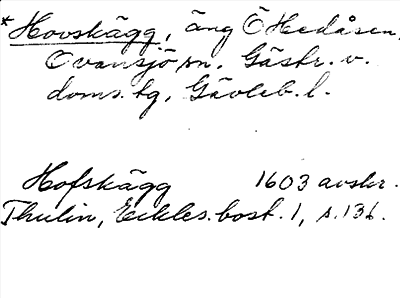 *Hovskägg, äng Ö Hedåsen,
Ovansjö sn. Gästr. v.
doms. tg, Gävleb. l.
Hofskägg 1603 avskr.
Thulin, Eckles. bost. 1, s. 136.